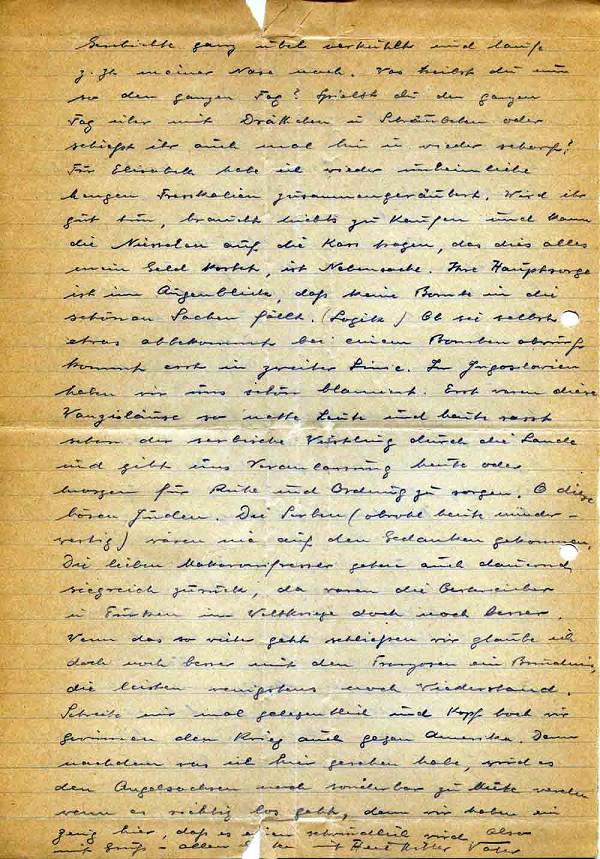 Geschichte ganz übel verkühlt und laufe
z. Zt. meiner Nase nach. Was treibst du nun
so den ganzen Tag? Spielst du den ganzen
Tag über mit Drähtchen u Schräubchen oder
schießt ihr auch mal hin u. wieder scharf?
Für Elisabeth habe ich wieder unheimliche
Mengen Fressalien zusammengeräubert. Wird ihr
gut tun, braucht nichts zu kaufen und kann
die auf die Kass tragen, das dies alles
mein Geld kostet, ist Nebensache. Ihre Hauptsorge
ist im Augenblick, daß keine Bombe in die
schönen Sachen fällt. (Logik) Ob sie selbst
etwas abbekommt bei einem Bombenabwurf
kommt erst in zweiter Linie. In Jugoslavien
haben wir uns schön blamiert. Erst waren diese
so nette Leute und heute rasst
schon der serbische durch die Lande
und gibt uns Veranlassung heute oder
morgen für Ruhe und Ordnung zu sorgen. O diese
bösen Juden. Die Serben (obwohl heute minder-
wertig) wären nie auf den Gedanken gekommen.
Die lieben Makaronifresser gehen auch dauernd
siegreich zurück, da waren die Oesterreicher
u Türken im Weltkriege doch noch besser.
Wenn das so weiter geht schließen wir glaube ich
doch noch besser mit den Franzosen ein Bündnis,
die leisten wenigstens noch Wiederstand.
Schreibe mir mal gelegentlich und Kopf hoch wir
gewinnen den Krieg auch gegen Amerika. Denn
nachdem was ich hier gesehen habe, wird es
den Angelsachsen noch sonderbar zu Mute werden
wenn es richtig los geht, denn wir haben ein
zeug hier, daß es einen schwindlich wird. Also
mit Gruß - allen Heil Hitler Vater